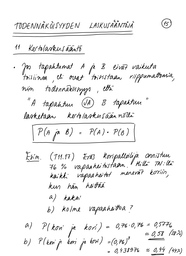 TODENNÄKÖISYYDEN LASKUSÄÄNTÖJÄ
1) Kertolaskusääntö
• Jos tapahtumat A ja B eivät vaikuta
toisiinsa, eli ovat toisistaan riippumattomia,
niin todennäköisyys, että
"A tapahtuu JA B tapahtuu"
lasketaan kertolaskusäännöllä
P(A ja B) = P(A) · P(B)
Esim. (T11.17) Eräs koripalloilija onnistuu
76 % vapaaheitoistaan. Millä tn:llä
kaikki vapaaheitot menevät koriin,
kun hän heittää
a) kaksi
b) kolme vapaaheittoa?
a) P(kori ja kori) = 0,76 · 0,76 = 0,5776
≈ 0,58 (58 %)
b) P(kori ja kori ja kori) = (0,76)³
= 0,438976 ≈ 0,44 (44 %)